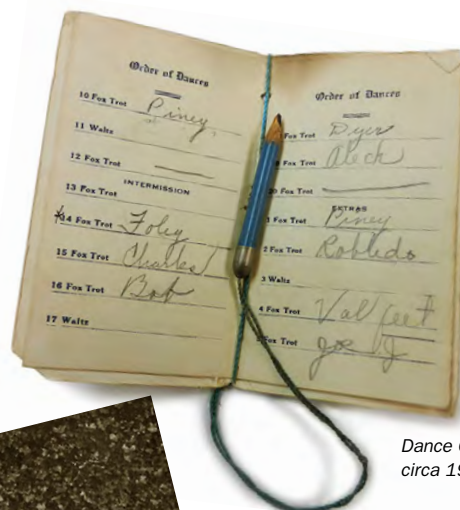 Order of Dances
10 Fox Trot Piney
11 Waltz
12 Fox Trot
INTERMISSION
13 Fox Trot
14 Fox Trot Foley
15 Fox Trot Charles
16 Fox Trot Bob
17 Waltz
Order of Dances
Fox Trot Dyer
Fox Trot Alech
Fox Trot
EXTRAS
1 Fox Trot Piney
2 Fox Trot Robledo
3 Waltz
4 Fox Trot Val
Fox Trot Joe J
Dance
circa 19